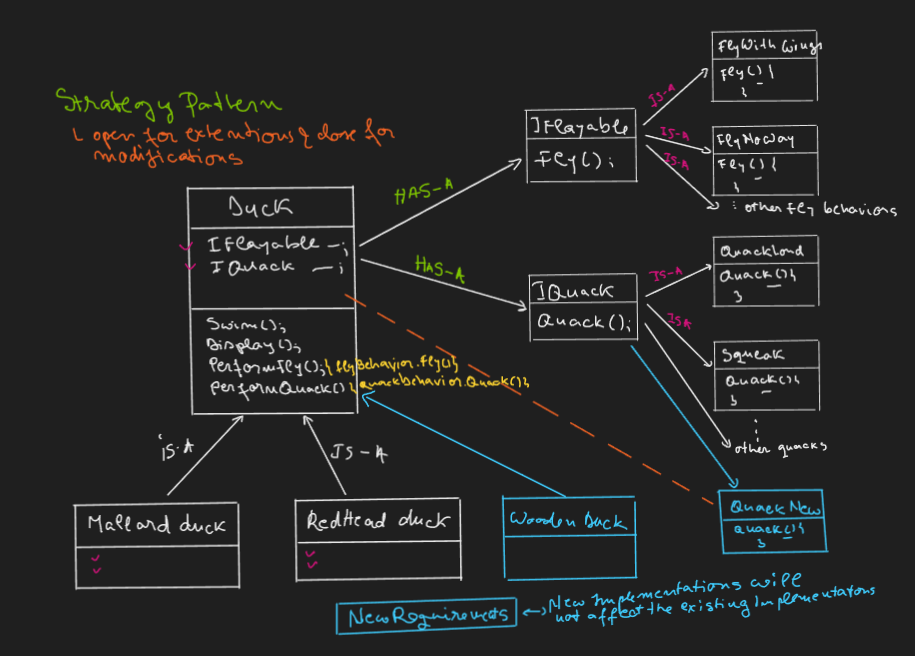 Strategy Pattern
↳ open for extentions & close for
modifications
Duck
IFlayable —;
IQuack —;
Swim();
Display();
PerformFly();{flyBehavior.fly()}
PerformQuack(){quackbehavior.Quack()};
HAS-A
HAS-A
IFlayable
Fly();
IQuack
Quack();
IS-A
IS-A
IS-A
FlyWith Wings
Fly(){
}
FlyNoWay
Fly(){
}
: other fly behaviors
IS-A
ISA
QuackLoud
Quack(){
}
Squeak
Quack(){
}
other quacks
QuackNew
Quack(){
}
iS-A
IS-A
Mallard duck
RedHead duck
Wooden Duck
New Requirements
New Implementations will
not affect the existing Implementatons